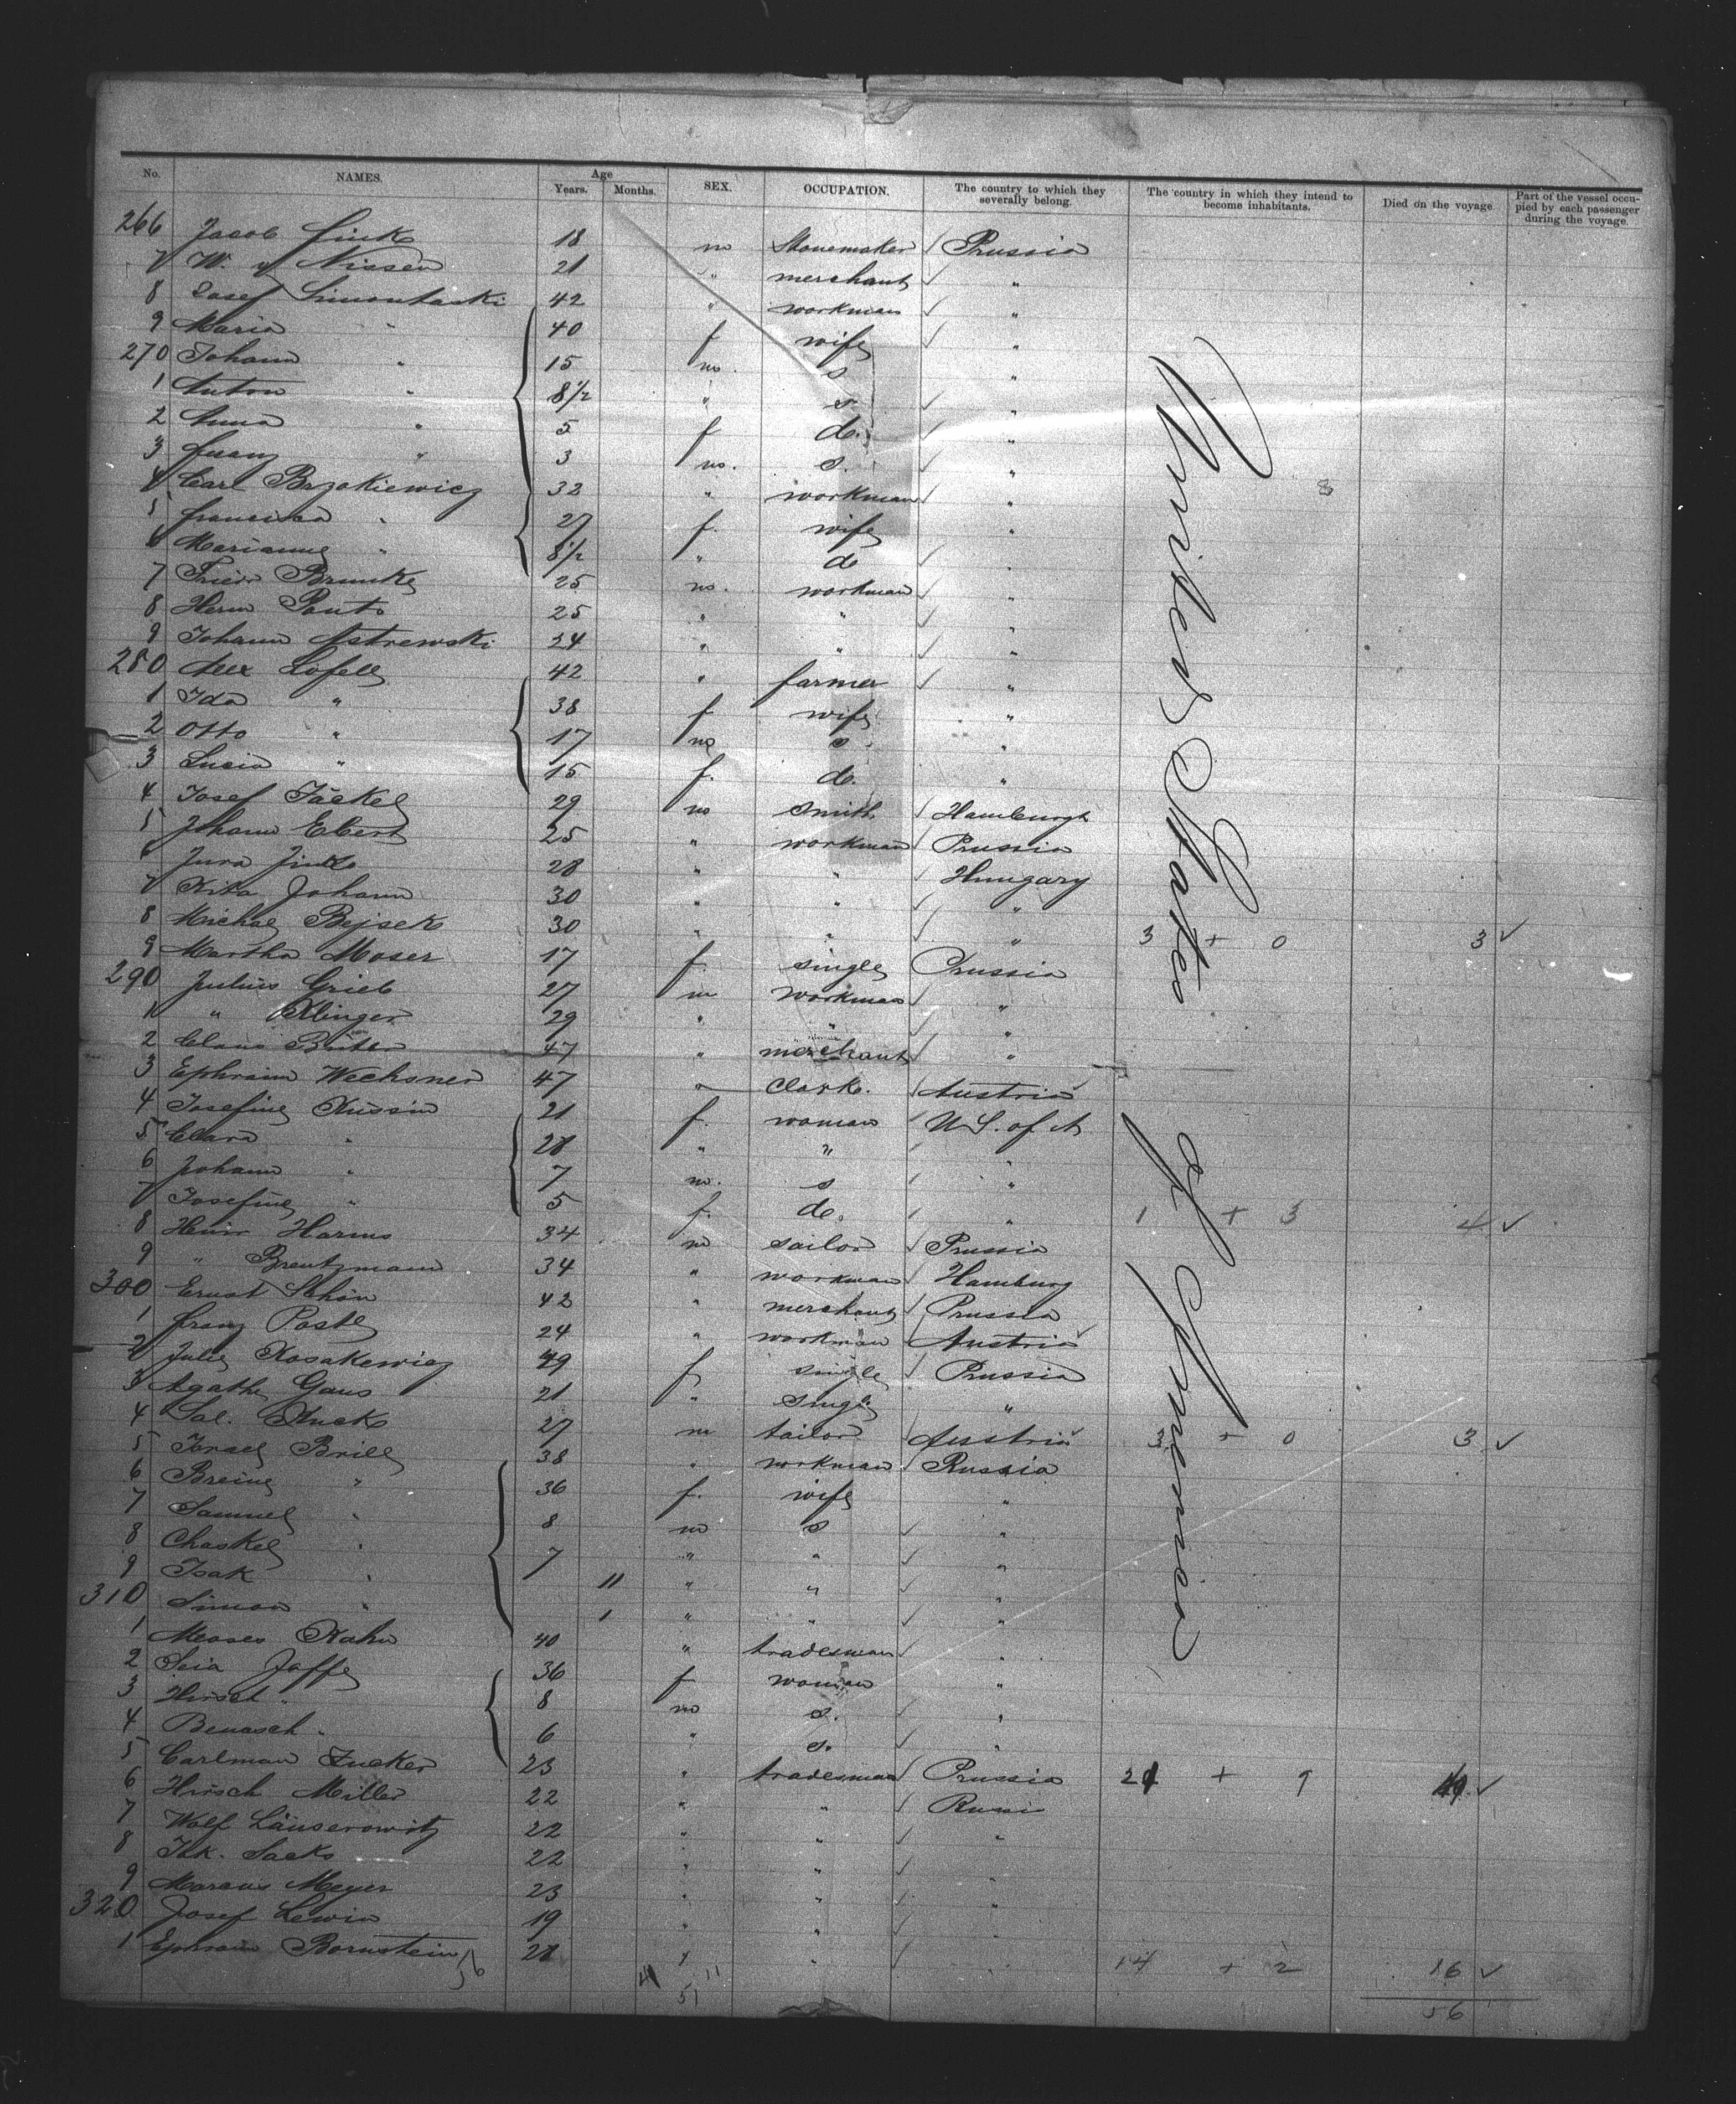 No. NAMES. Age Years. Months. SEX. OCCUPATION. The country to which they severally belong. The country in which they intend to become inhabitants. Died on the voyage. Part of the vessel occupied by each passenger during the voyage.
266 Jacob 18 m Prussia
7 W. v Nissen 21 " merchant "
8 Josef 42 " workman "
9 Maria " 40 f wife "
270 Johann " 15 m. s "
1 Anton " 8 1/2 " s "
2 Anna " 5 f d. "
3 Franz " 3 m. s. "
4 Carl Brzakiewicz 32 " workman "
5 Francisca " 27 f. wife "
6 Marianne " 8 1/2 " d "
7 25 m. workman "
8 Herm 25 " " "
9 Johann 24 " " "
280 Alex 42 " farmer "
1 Ida " 38 f wife "
2 Otto " 17 m s "
3 Lucia " 15 f. d. "
4 Josef Jäckel 29 m smith Hamburgh
5 Johann Ebert 25 " workman Prussia
6 Jura 28 " " Hungary
7 Johann 30 " " "
8 Michael Bejsek 30 " " " 3 + 0 3 ✓
9 Martha Moser 17 f. single Prussia
290 Julius Grieb 27 m workman "
1 " Klinger 29 " " "
2 Claus 47 " merchant "
3 Ephraim Wechsner 47 " Clark. Austria
4 Josefine 21 f. woman U S. of A
5 Clara " 28 " " "
6 Johann " 7 m. s "
7 Josefine " 5 f. d. " 1 + 3 4 ✓
8 Heinr Harms 34 m sailor Prussia
9 " Brentzmann 34 " workman Hamburg
300 Ernst Schön 42 " merchant Prussia
1 Franz 24 " workman Austria
2 Julie Kosakewicz 49 f single Prussia
3 Agathe Gans 21 " single "
4 Sal. 27 m tailor Austria 3 + 0 3 ✓
5 Israel Brill 38 " workman Russia
6 Breine " 36 f. wife "
7 Samuel " 8 m s "
8 Chaskel " 7 " " "
9 Isak " 11 " " "
310 Simon " 1 " " "
1 Moses Kahn 40 " tradesman "
2 Jaffe 36 f woman "
3 Hirsch " 8 m s. "
4 " 6 " s. "
5 Carlman Zucker 23 " tradesman Prussia + 9 ✓
6 Hirsch Miller 22 " " Russi
7 Wolf 22 " " "
8 Isk. Sacks 22 " " "
9 Marcus Meyer 23 " " "
320 Josef Lewin 19 " " "
1 Ephraim Bornstein 28 " " " 14 + 2 16 ✓
56 11 51 56
United States of America